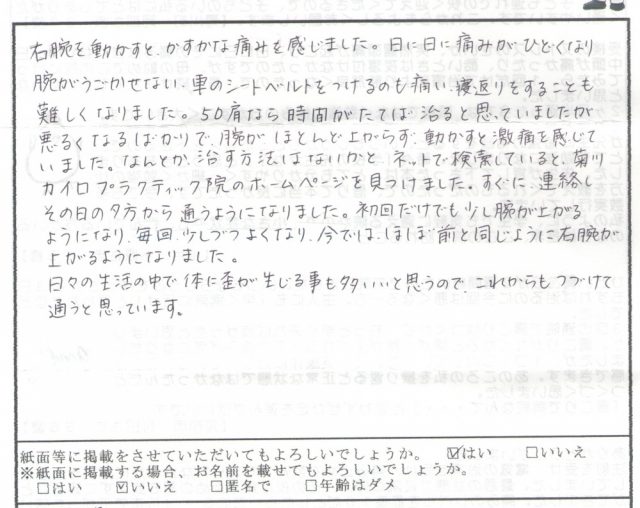 右腕を動かすと、かすかな痛みを感じました。日に日に痛みが、ひどくなり
腕がうごかせない、車のシートベルトをつけるのも痛い、寝返りをすることも
難しくなりました。50肩なら時間がたてば治ると思っていましたが
悪るくなるばかりで、腕がほとんど上がらず、動かすと激痛を感じて
いました。なんとか、治す方法はないかと、ネットで検索していると、菊川
カイロプラクティック院のホームページを見つけました。すぐに、連絡し
その日の夕方から通うようになりました。初回だけでも少し腕が上がる
ようになり、毎回、少しづつよくなり、今では、ほぼ前と同じように右腕が
上がるようになりました。
日々の生活の中で体に歪が生じる事も多いいと思うので、これからもつづけて
通うと思っています。
紙面等に掲載をさせていただいてもよろしいでしょうか。 ☑はい □いいえ
※紙面に掲載する場合、お名前を載せてもよろしいでしょうか。
□はい ☑いいえ □匿名で □年齢はダメ